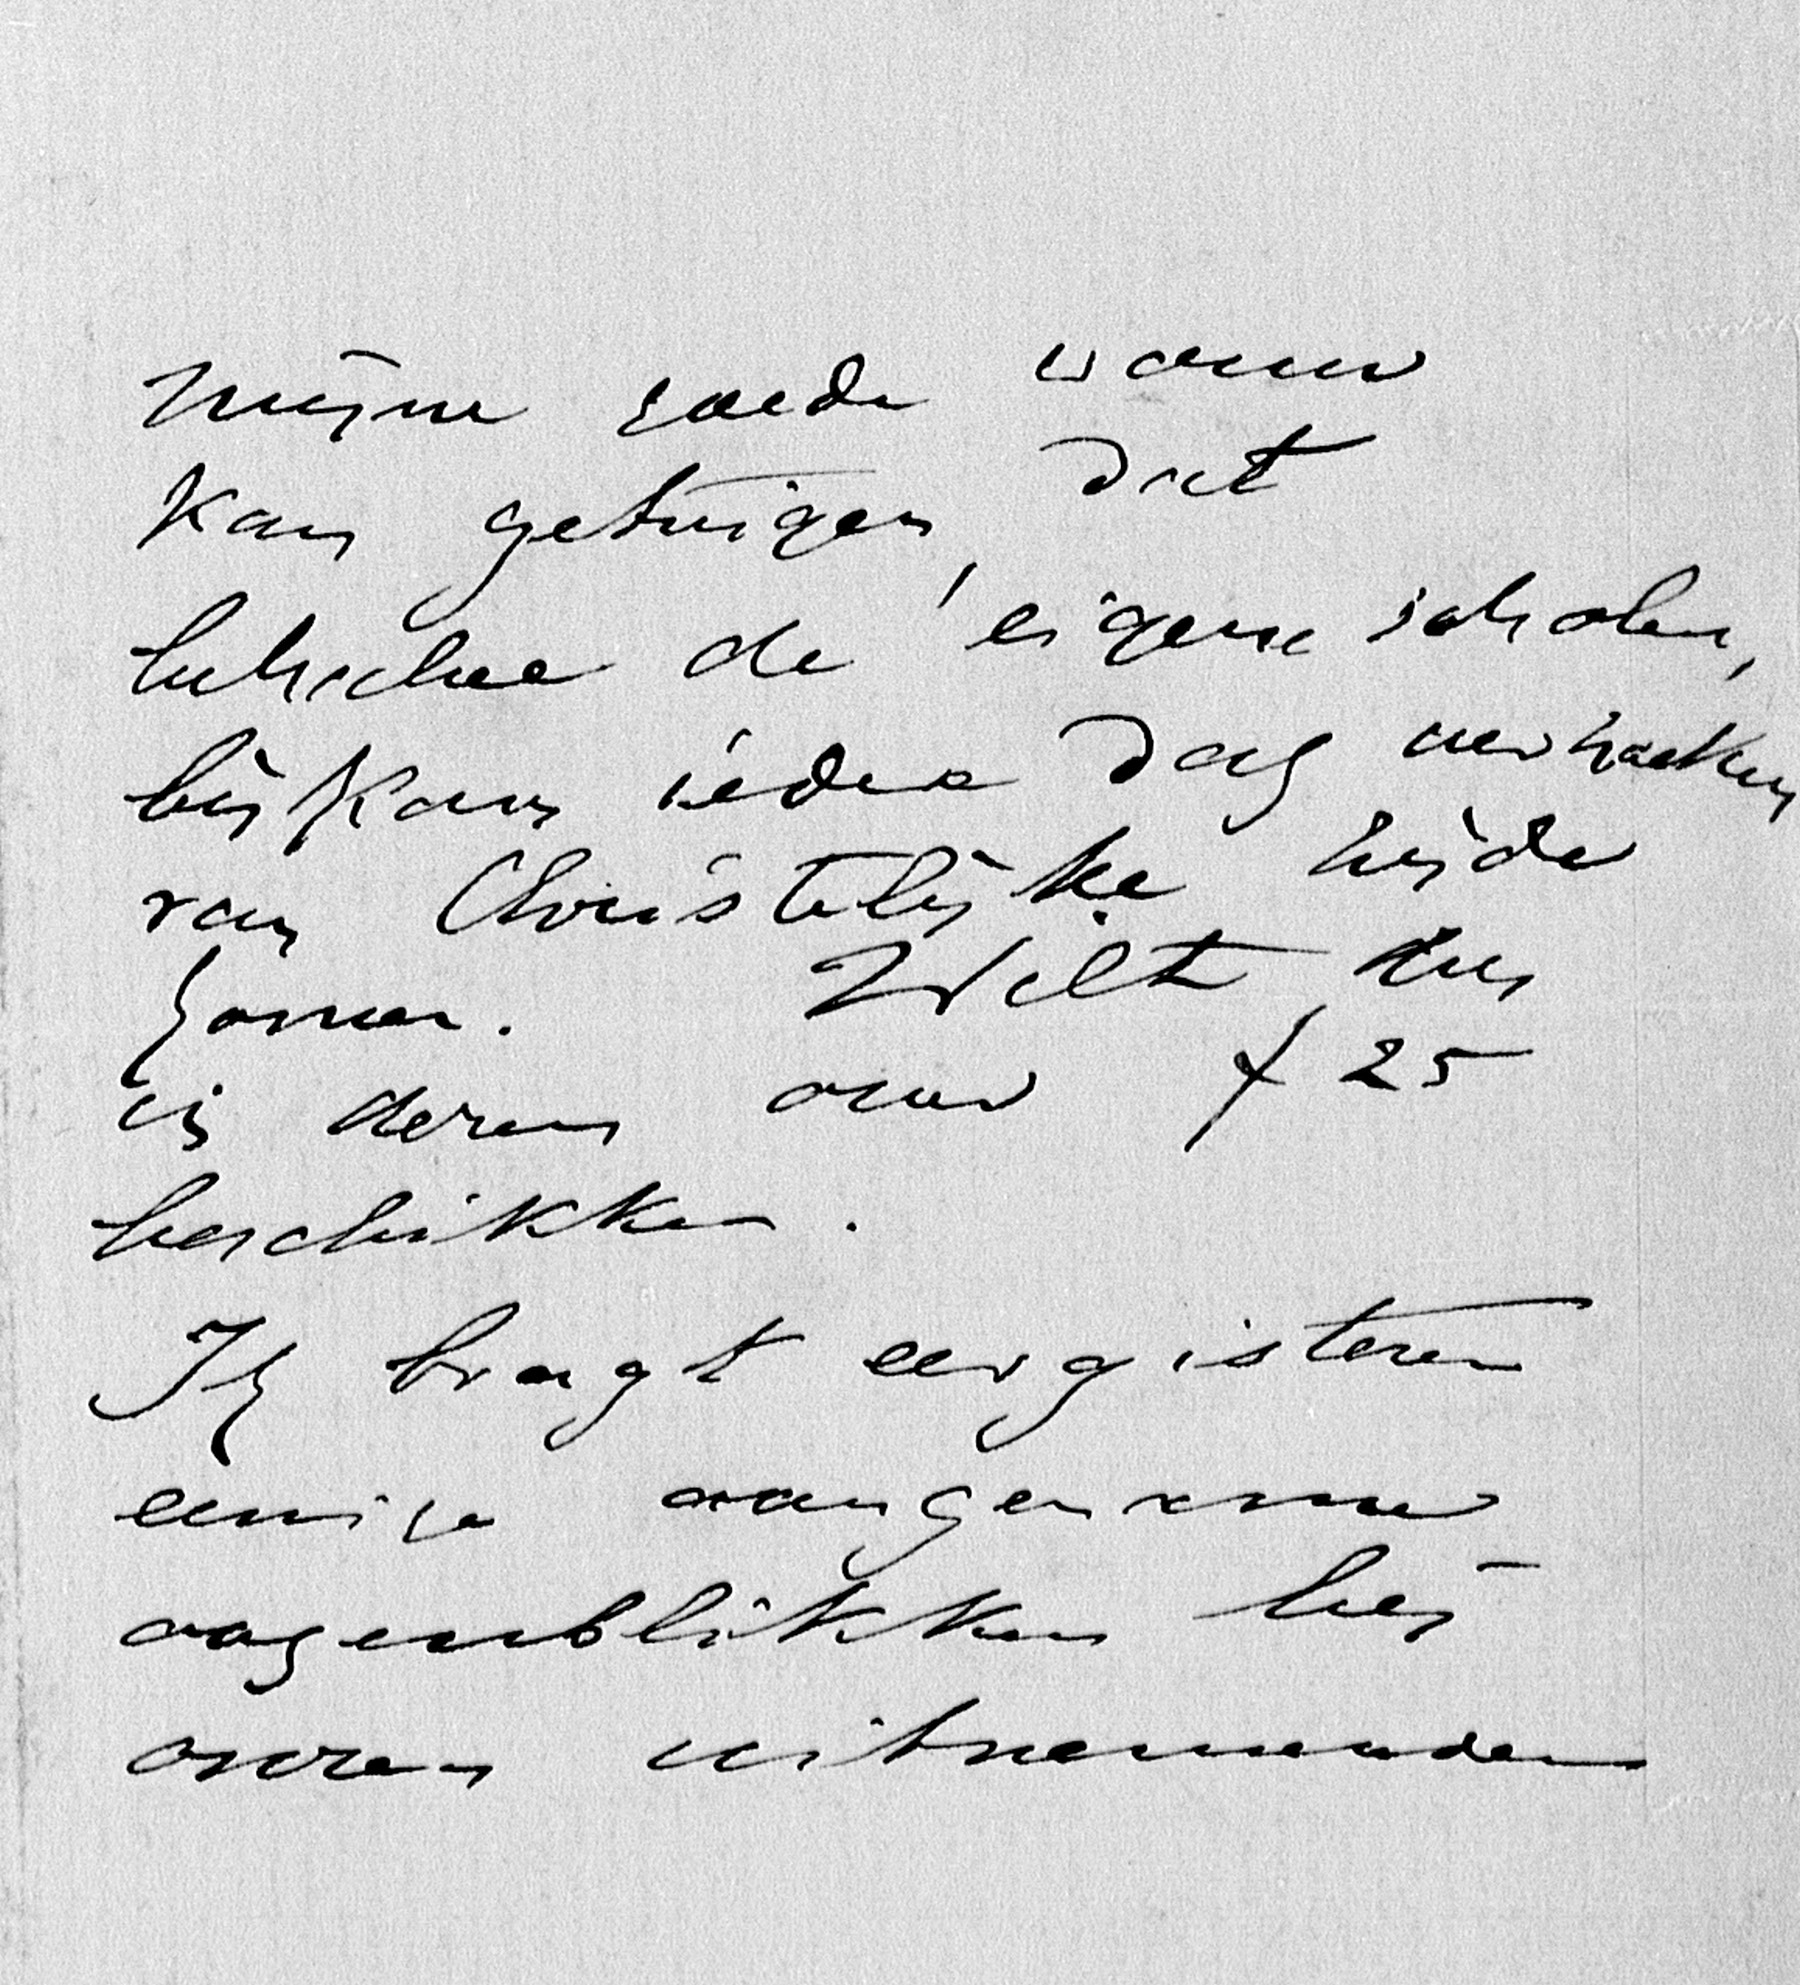 mijne goede vrouw
kan getuigen, dat
behalve de eigene scholen,
bijkans iedere dag verzoeken
van Christelijke zijde
komen. Wilt dus
over f 25
beschikken.
Ik bragt eergisteren
eenige aangename
oogenblikken bij
onzen uitnemenden